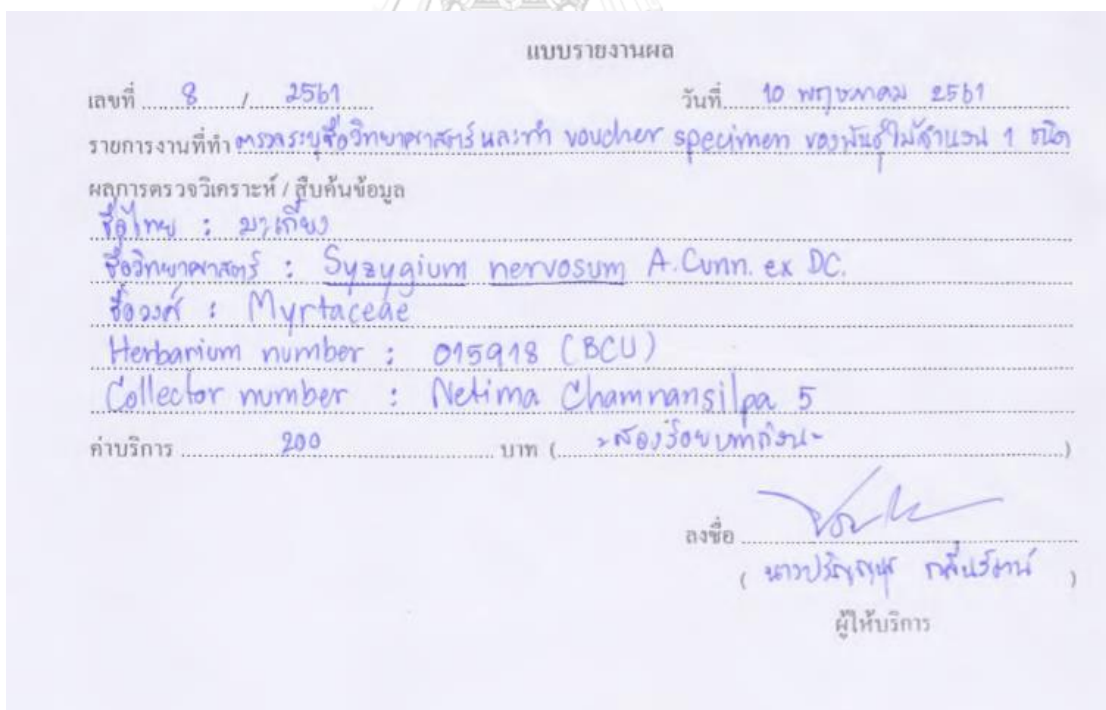 แบบรายงานผล
เลขที่ 8 / 2561 วันที่ 10 พฤษภาคม 2561
รายการงานที่ทำ ตรวจระบุชื่อวิทยาศาสตร์และทำ voucher specimen ของพันธุ์ไม้จำนวน 1 ชนิด
ผลการตรวจวิเคราะห์ / สืบค้นข้อมูล
ชื่อไทย : มะเกี๋ยง
ชื่อวิทยาศาสตร์ : Syzygium nervosum A.Cunn. ex DC.
ชื่อวงศ์ : Myrtaceae
Herbarium number : 015918 (BCU)
Collector number : Netima Chamnansilpa 5
ค่าบริการ 200 บาท ( -สองร้อยบาทถ้วน- )
ลงชื่อ
( )
ผู้ให้บริการ